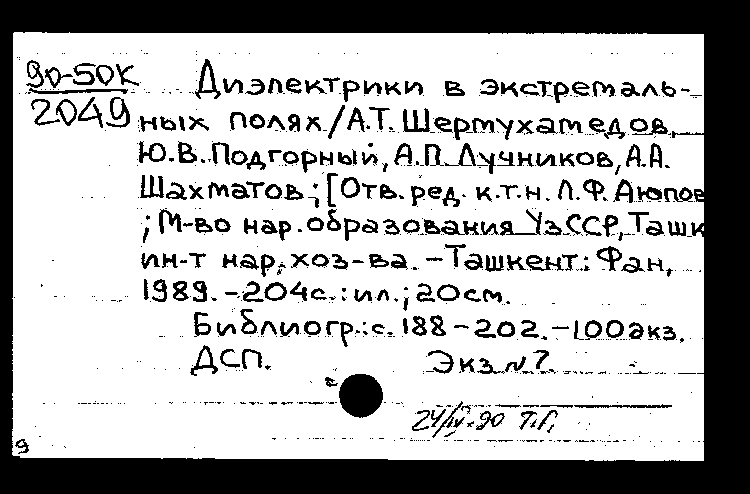 90-50К
2049
Диэлектрики в экстремаль-
ных полях/А.Т. Шермухамедов,
Ю.В. Подгорный, А.П. Лучников, А.А.
Шахматов; [Отв. ред. к.т.н. Л.Ф. Аюпов
; М-во нар. образования УзССР, Ташк
ин-т нар. хоз-ва. – Ташкент: Фан,
1989. – 204с.: ил.; 20см.
Библиогр.: с. 188 – 202. – 100экз.
ДСП. Экз N 7.
24/IV-90 Т.Г.
9